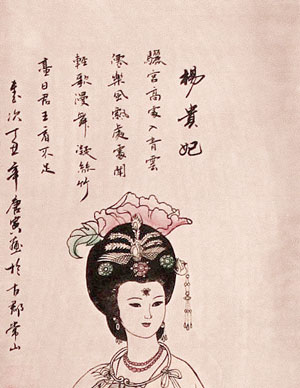 楊貴妃
驪宮高處入青雲
僊樂風飄處處聞
輕歌漫舞凝絲竹
盡日君王看不足
歲次丁丑年唐寅画於古郡常山